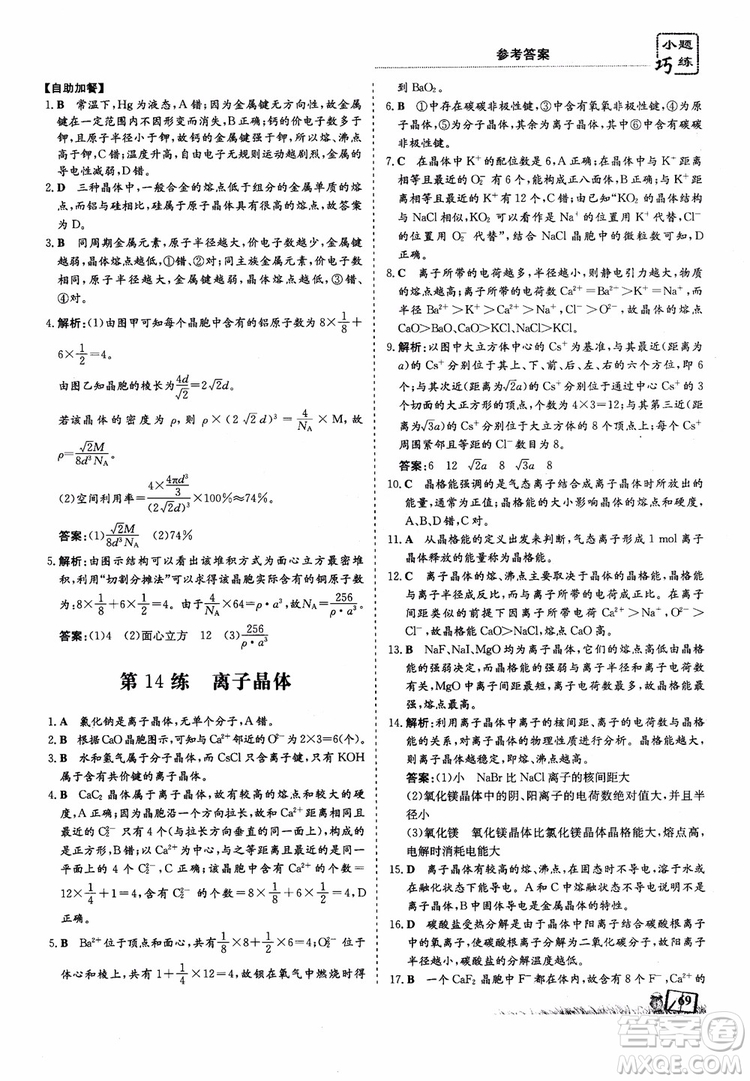 参考答案
小题
巧练
【自助加餐】
1. B 常温下，Hg为液态，A错；因为金属键无方向性，故金属键在一定范围内不因形变而消失，B正确；钙的金属键强于钾，故钙的熔、沸点高于钾，C错；温度升高，自由电子无规则运动剧烈，金属的导电性减弱，D错。
2. D 三种晶体中，一般合金的熔点低于组分的金属单质熔点，而铝与硅比较，硅属于原子晶体，具有较高的熔点，故答案为D。
3. B 同周期金属元素，原子半径越大，价电子数越少，金属键越弱，①错，②对；同主族金属元素，原子半径越大，金属键越弱，原子半径越小，金属键越强，其熔点越高，则③错、④对。
4. 解析：(1)由图甲可知每个晶胞中含有的铝原子数为8×1/8+
6×1/2=4。
由图乙知晶胞的棱长为4d/√2=2√2d。
若该晶体的密度为ρ，则ρ×(2√2d)³=4/N_A×M，故
ρ=√2M/8d³N_A。
(2)空间利用率=4×4πd³/3/(2√2d)³×100%≈74%。
答案：(1)√2M/8d³N_A (2)74%
5. 解析：由图示结构可以看出该堆积方式为面心立方最密堆积，根据“切割分摊法”可求该晶胞实际含有的铜原子数为：8×1/8+6×1/2=4。由4/N_A×64=ρ·a³，故N_A=256/ρ·a³。
答案：(1)4 (2)面心立方 12 (3)256/ρ·a³
第14练 离子晶体
1. A 氯化钠是离子晶体，无单个分子，A错。
2. B 根据CaO晶胞图示，可知与Ca²⁺邻近的O²⁻为2×3=6(个)。
3. D 水和氢气属于分子晶体，而CsCl只含离子键，只有KOH属于含有共价键的离子晶体。
4. B CaC₂晶体为离子晶体，故具有较高的熔点，但由于晶胞沿一个方向拉长，故1个Ca²⁺周围等距离且最近的C₂²⁻只有4个(与拉长方向垂直的同一面上)，B错误。同样的原因，与每个Ca²⁺距离相等且最近的Ca²⁺也是同一平面上的4个，C正确；在该晶胞中含有的Ca²⁺数为12×1/4+1=4，含有的C₂²⁻为8×1/8+6×1/2=4，D正确。
5. B Ba²⁺位于顶点和面心，共有8×1/8+6×1/2=4(个)，O₂²⁻位于体心和棱上，共有1+12×1/4=4(个)，故钡在氧气中燃烧时得
到BaO₂。
6. B ①中存在碳碳非极性键，③中含有氧氧非极性键，④为原子晶体，⑤中不存在非极性键，其中只有⑥中含有碳碳非极性键。
7. C 在晶体中K⁺的配位数是6，A正确；与K⁺距离相等且最近的O₂⁻有6个，能够构成正八面体，B正确；与K⁺距离相等且最近的K⁺有12个，C错误；由“KO₂的晶体结构与NaCl相似，KO₂可以看作是Na⁺的位置用K⁺代替，Cl⁻的位置用O₂⁻代替”，可知它们晶胞中的微粒数可知，D正确。
8. C 离子所带的电荷越多，半径越小，则静电引力越大，物质的晶格能越大，熔点越高；离子的电荷数Ca²⁺=Ba²⁺>Na⁺=K⁺，离子半径Ba²⁺>K⁺>Ca²⁺>Na⁺，因此，晶体熔点CaO>BaO>NaCl>KCl。
9. 解析：以图中大立方体中心Cs⁺为基准，与其最近(距离为a)的Cs⁺分别位于其上、下、前、后、左、右的六个方位，即6个；与其次近(距离为√2a)的Cs⁺分别位于通过中心Cs⁺的3个切面的大正方形的顶点，个数为4×3=12；与其第三近(距离为√3a)的Cs⁺分别位于大立方体的8个顶点上；每个Cs⁺周围紧邻且等距的Cl⁻数目为8个。
答案：6 12 √2a 8 √3a 8
10. C 晶格能强调的是气态离子结合成离子晶体时所放出的能量，通常为正值；晶格能的大小影响晶体的熔点和硬度，A、B、D错，C正确。
11. A 从晶格能的定义出发来判断，气态离子形成1 mol离子晶体释放的能量称为晶格能。
12. B 离子晶体的熔、沸点主要取决于晶格能的大小，在离子间距近似相等的前提下取决于离子所带的电荷，在离子间距类似的前提下因离子所带电荷Ca²⁺>Na⁺，O²⁻>Cl⁻，所以晶格能大小不同，熔点不同。
13. B NaF、NaI、MgO均为离子化合物，形成的晶体都为离子晶体，晶格能越大，熔点越高，硬度越大，它们中MgO的离子电荷数大且离子间距最短，故晶格能最大，熔点最高。
14. 解析：利用离子晶体中离子的核间距、离子的电荷数与晶格能的关系，对离子晶体的物理性质进行分析。晶格能越大，则离子晶体越稳定，熔、沸点越高。
答案：(1)小 NaBr比NaCl离子的核间距大
(2)氧化镁晶体中的阴、阳离子的电荷数绝对值大，并且半径小
(3)氧化镁 氧化镁晶体比氯化镁晶体晶格能大，熔点高，电解时消耗电能大
15. D 离子晶体有较高的熔、沸点，在固态时不导电，在水溶液或在熔化状态下可导电。A和C有可能是分子晶体或原子晶体，B中固体能导电一定不是离子晶体的特性。
16. D 碳酸盐受热分解一般是由于晶体中阳离子结合碳酸根离子中的氧离子，使碳酸根离子分解为二氧化碳分子，阳离子半径越小，碳酸盐的分解温度越低。
17. C 一个CaF₂晶胞中含有8个F⁻，每个F⁻周围距离最近的
69
答案圈